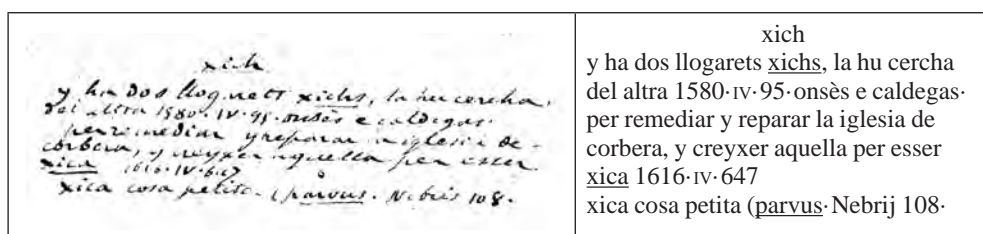 xich
y ha dos llogarets xichs, la hu cercha
del altra 1580·IV·95·onsès e caldegas·
per remediar y reparar la iglesia de
corbera, y creyxer aquella per esser
xica 1616·IV·647
xica cosa petita (parvus· Nebrij 108·
xich
y ha dos llogarets xichs, la hu cercha
del altra 1580·IV·95·onsès e caldegas·
per remediar y reparar la iglesia de
corbera, y creyxer aquella per esser
xica 1616·IV·647
xica cosa petita (parvus· Nebrij 108·